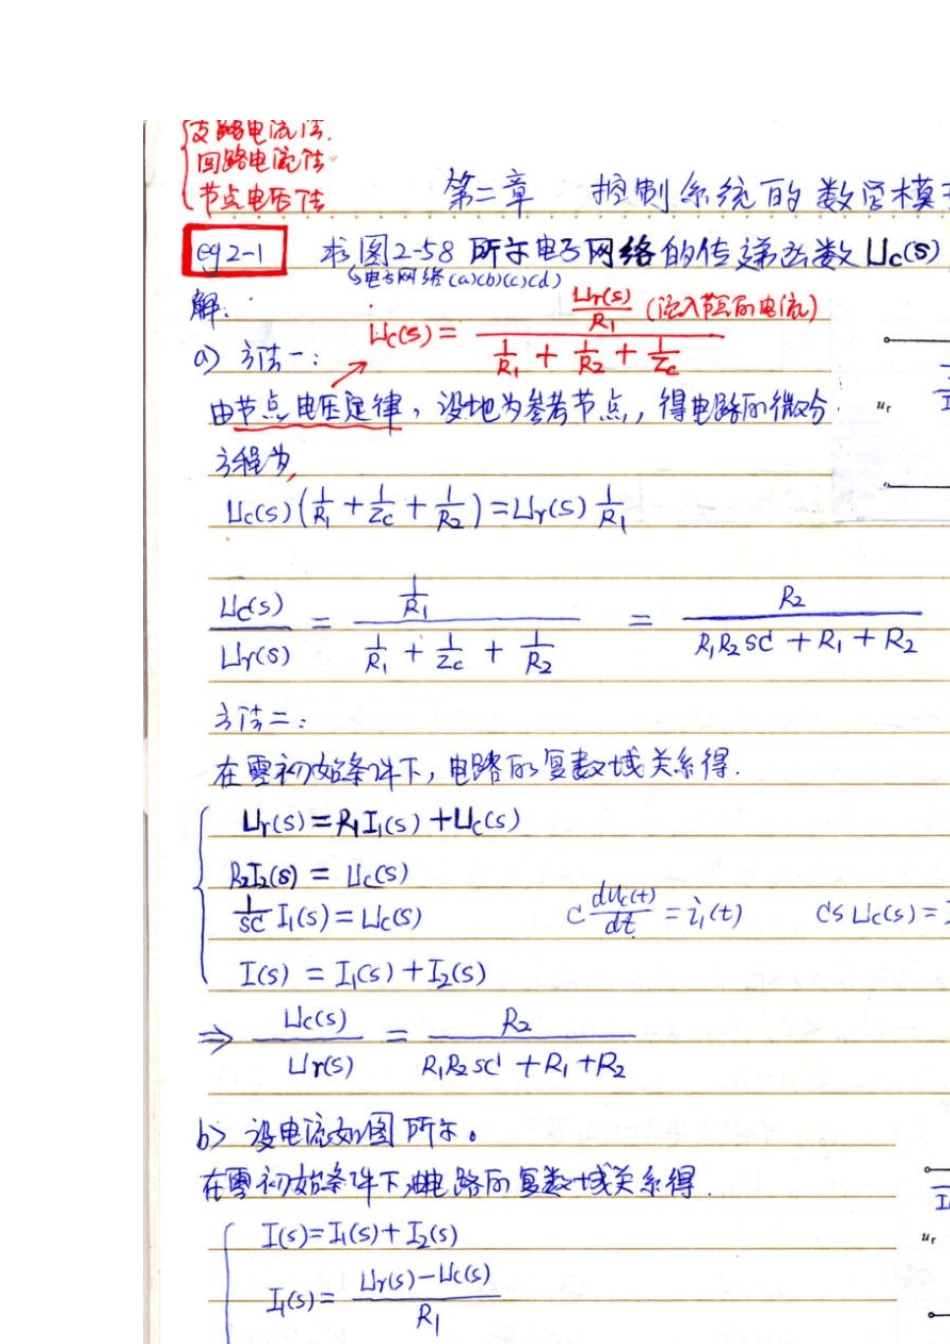 支路电流法.
回路电流法
节点电压法
第二章 控制系统的数学模
eg2-1 求图2-58所示电子网络的传递函数Uc(s)
↳电子网络(a)(b)(c)(d)
解:
a) 方法一: Uc(s) = (Ur(s)/R1) / (1/R1 + 1/R2 + 1/Zc) (流入节点的电流)
由节点电压定律,设地为参考节点,得电路的微分
ur
方程为,
Uc(s)(1/R1 + 1/Zc + 1/R2) = Ur(s) 1/R1
Uc(s)/Ur(s) = (1/R1) / (1/R1 + 1/Zc + 1/R2) = R2 / (R1R2SC + R1 + R2)
方法二:
在零初始条件下,电路的复数域关系得.
Ur(s) = R1I1(s) + Uc(s)
R2I2(s) = Uc(s)
1/SC I1(s) = Uc(s) C duc(t)/dt = i1(t) CS Uc(s) =
I(s) = I1(s) + I2(s)
⇒ Uc(s)/Ur(s) = R2 / (R1R2SC + R1 + R2)
b) 设电流如图所示。
在零初始条件下,由电路的复数域关系得.
I(s) = I1(s) + I2(s)
ur
I1(s) = (Ur(s) - Uc(s)) / R1